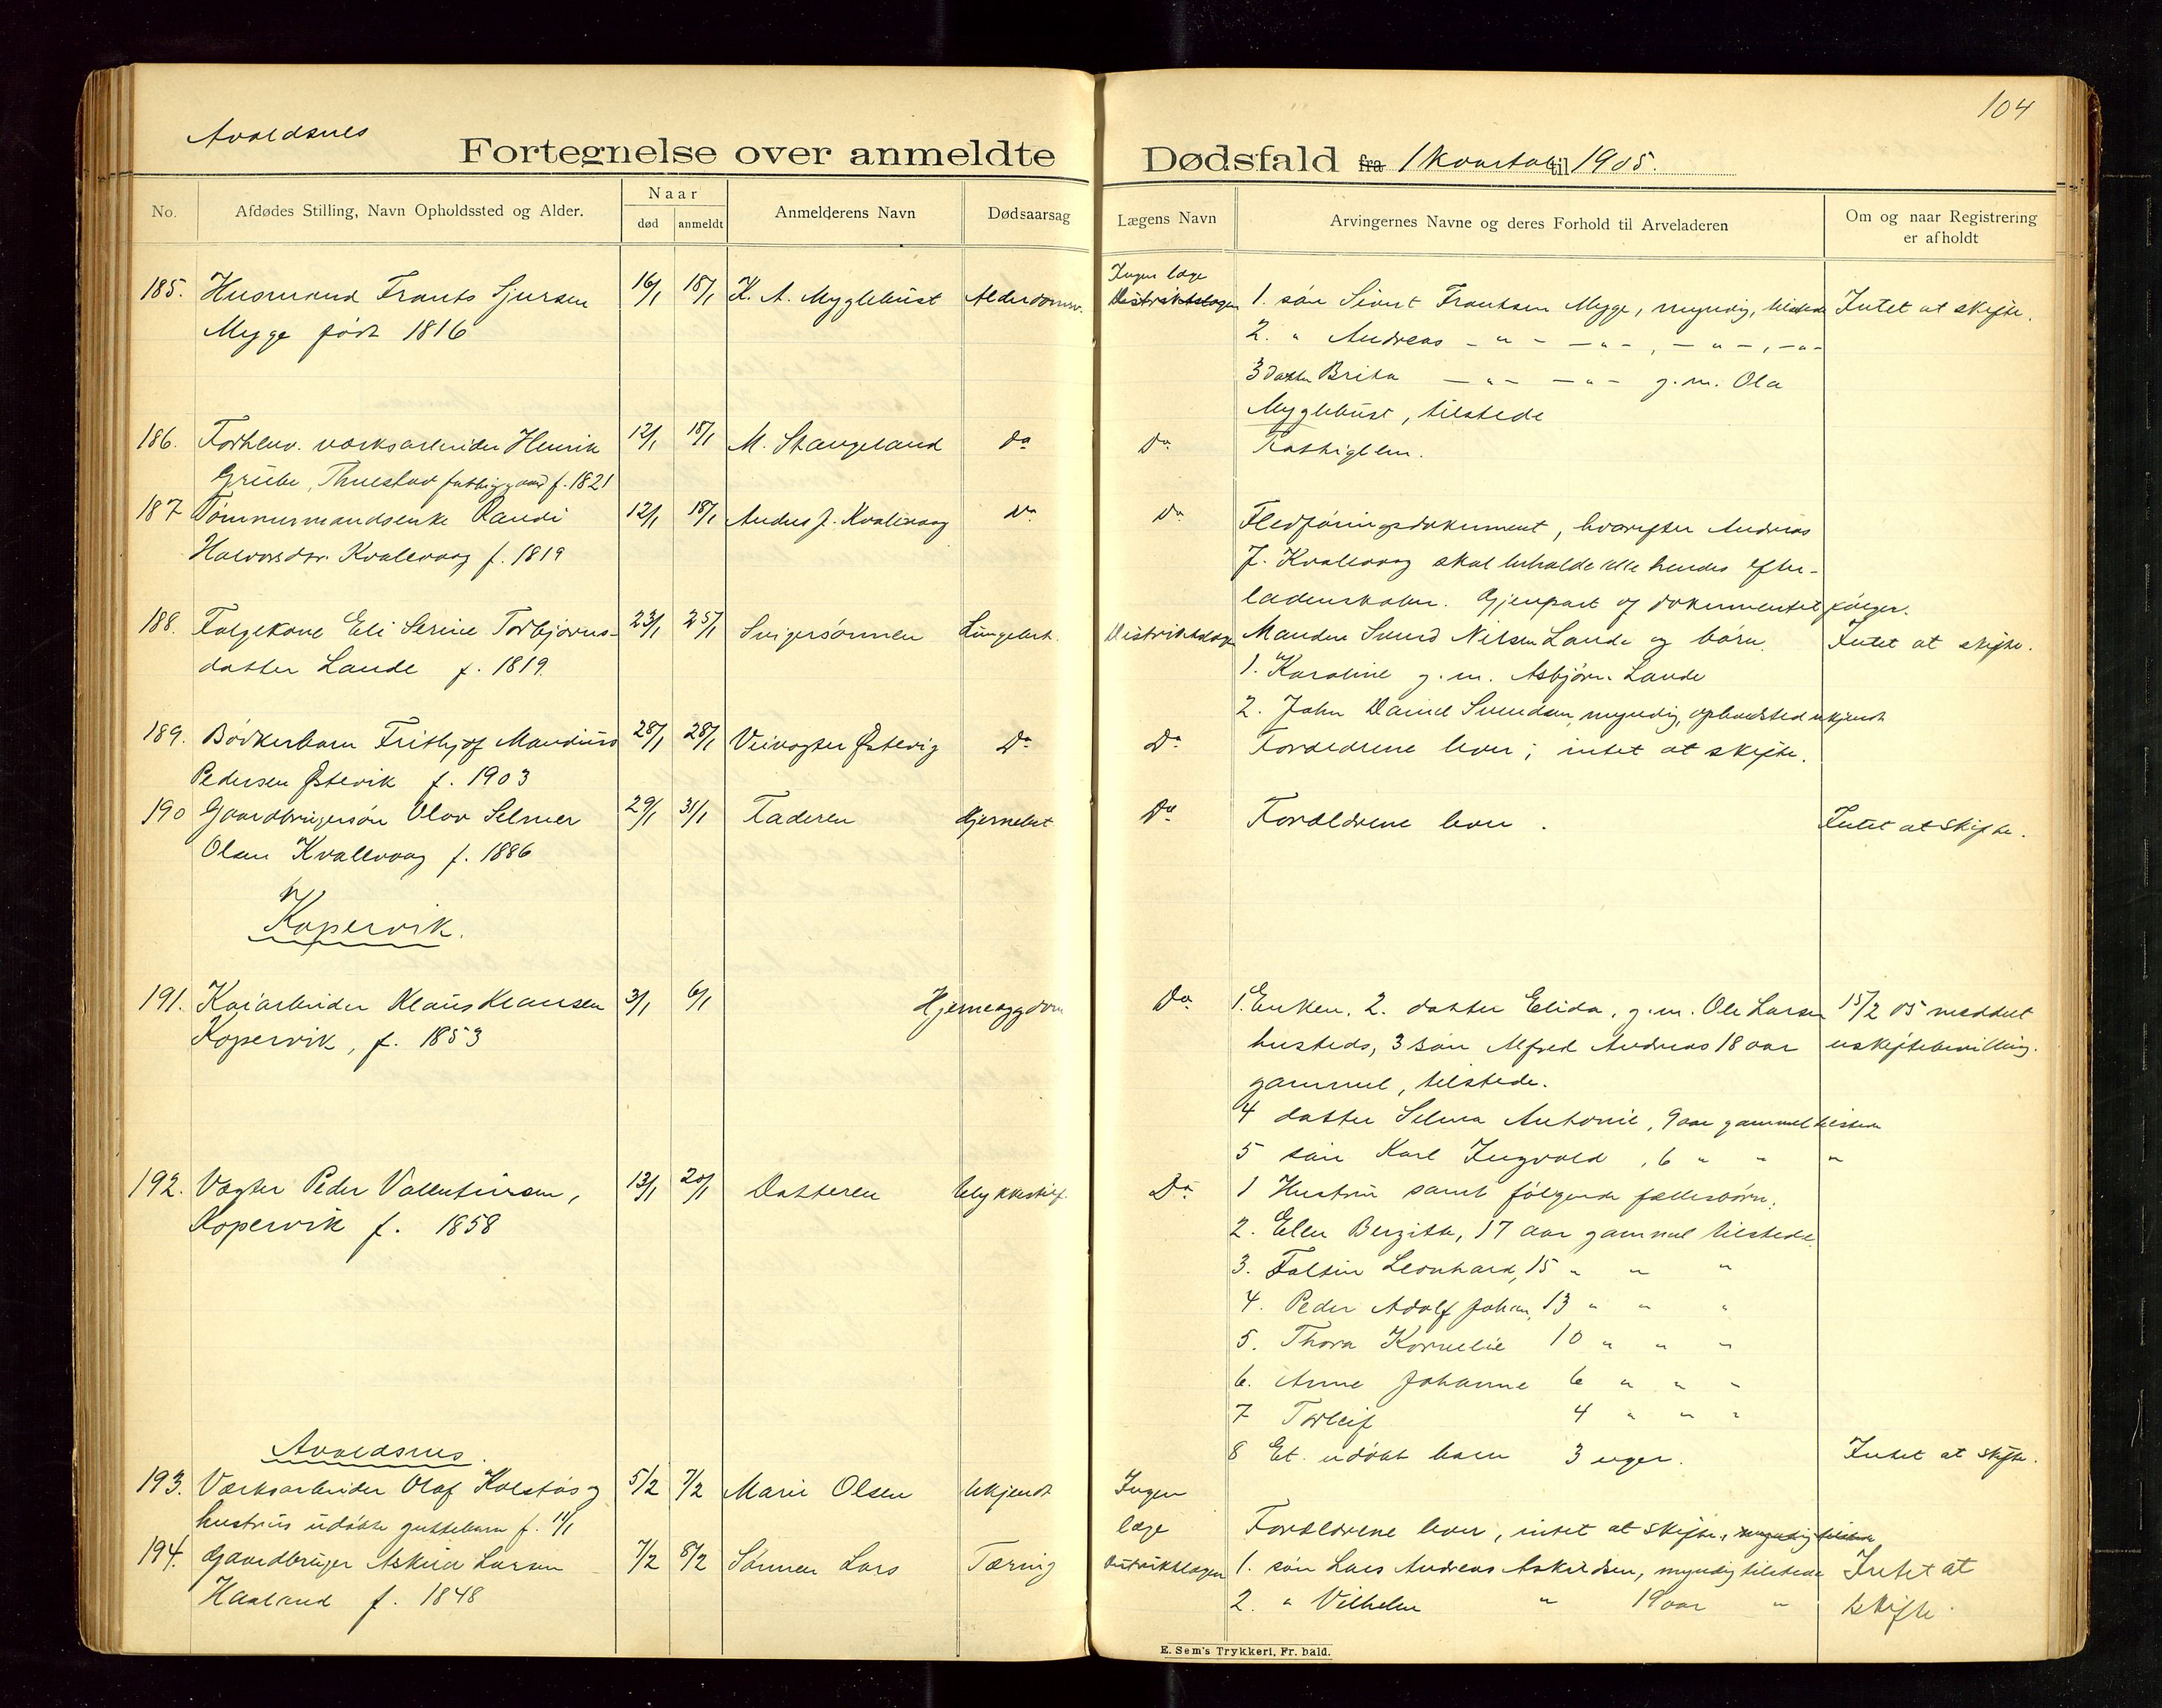 104
Avaldsnes
Fortegnelse over anmeldte Dødsfald fra 1 kvartal til 1905.
No.
Afdødes Stilling, Navn Opholdssted og Alder.
Naar
død
anmeldt
Anmelderens Navn
Dødsaarsag
Lægens Navn
Arvingernes Navne og deres Forhold til Arveladeren
Om og naar Registrering
er afholdt
185. Husmand Frants Sjursen 16/1 18/1 K. A. Myglebust Alderdomssv.
Mygge født 1816
Ingen læge
Distriktslægen
1. søn Sivert Frantsen Mygge, myndig, tilstede
2. " Andreas - " - - " - , - " - , - " -
3 datter Brita - " - - " - g. m. Ola
Myglebust, tilstede
Intet at skifte.
186. Forhenv. værksarbeider Henrik 12/1 18/1 M. Stangeland Do
Grübe, fattiggaard f. 1821
Do Fattiglem.
187 Tømmermandsenke Randi 12/1 18/1 Andres J. Kvalevaag Do
Halvorsdtr. Kvalevaag f. 1819
Do Fledføringsdokument, hvorefter Andreas
J. Kvalevaag skal beholde alle hendes efter-
ladenskaber. Gjenpart af dokumentet følger.
188. Folgekone Eli Serine Torbjørns- 23/1 25/1 Svigersønnen Lungebet.
datter Lande f. 1819.
Distriktslægen Manden Svend Nilsen Lande og børn.
1. Karoline g. m. Asbjørn Lande
2. John Daniel Svendsen, myndig, opholdsted ukjendt
Intet at skifte.
189. Bødkerbarn Frithjof Mandius 28/1 28/1 Veivogter Østevig Do
Pedersen Østevik f. 1903
Do Forældrene lever; intet at skifte.
190 Gaardbrugersøn Olav Selmer 29/1 31/1 Faderen Hjernebet
Olsen Kvalevaag f. 1886
Do Forældrene lever. Intet at skifte.
Kopervik.
191. Kaiarbeider Klaus Klausen 3/1 6/1 Hjernesygdom
Kopervik, f. 1853
Do 1. Enken. 2. datter Elida, g. m. Ole Larsen
husteds, 3 søn Alfred Andreas 18 aar
gammel, tilstede.
4 datter Selma Antonie, 9 aar gammel tilstede
5 søn Karl Ingvald, 6 " " "
15/2 05 meddelt
uskiftebevilling.
192. Vægter Peder Valentinsen, 13/1 20/1 Datteren Ulykkestilf.
Kopervik f. 1858
Do 1 Hustru samt følgende fællesbørn:
2. Ellen Bergitte, 17 aar gammel tilstede
3. Faltin Leonhard, 15 " " "
4. Peder Adolf Johan, 13 " " "
5. Thora Kornelie 10 " " "
6. Anne Johanne 6 " " "
7 Torleif 4 " " "
8 Et udøbt barn 3 uger.
Intet at skifte.
Avaldsnes.
193. Værksarbeider Olaf Kolstøs og 5/2 7/2 Marie Olsen Ukjendt
hustrus udøbte guttebarn f. 11/1
Ingen
læge
Forældrene lever, intet at skifte. myndig tilstede
194. Gaardbruger Askild Larsen 7/2 8/2 Sønnen Lars Tæring
Haaland f. 1848
Distriktslægen 1. søn Lars Andreas Askildsen, myndig tilstede
2. " Vilhelm " 19 aar "
Intet at
skifte.
E. Sem's Trykkeri, Fr.hald.